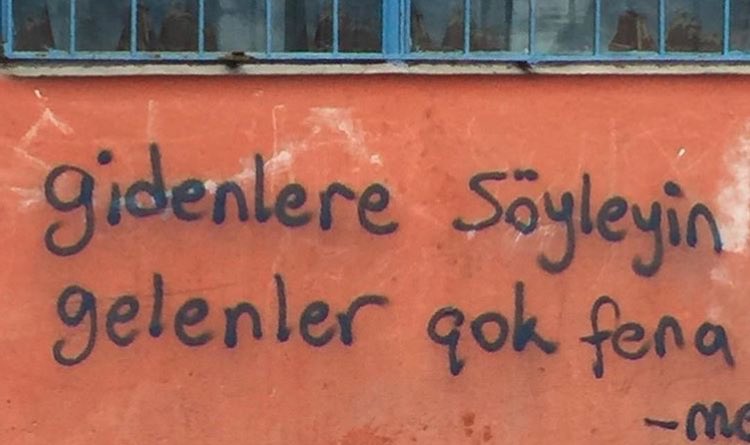 gidenlere söyleyin
gelenler çok fena